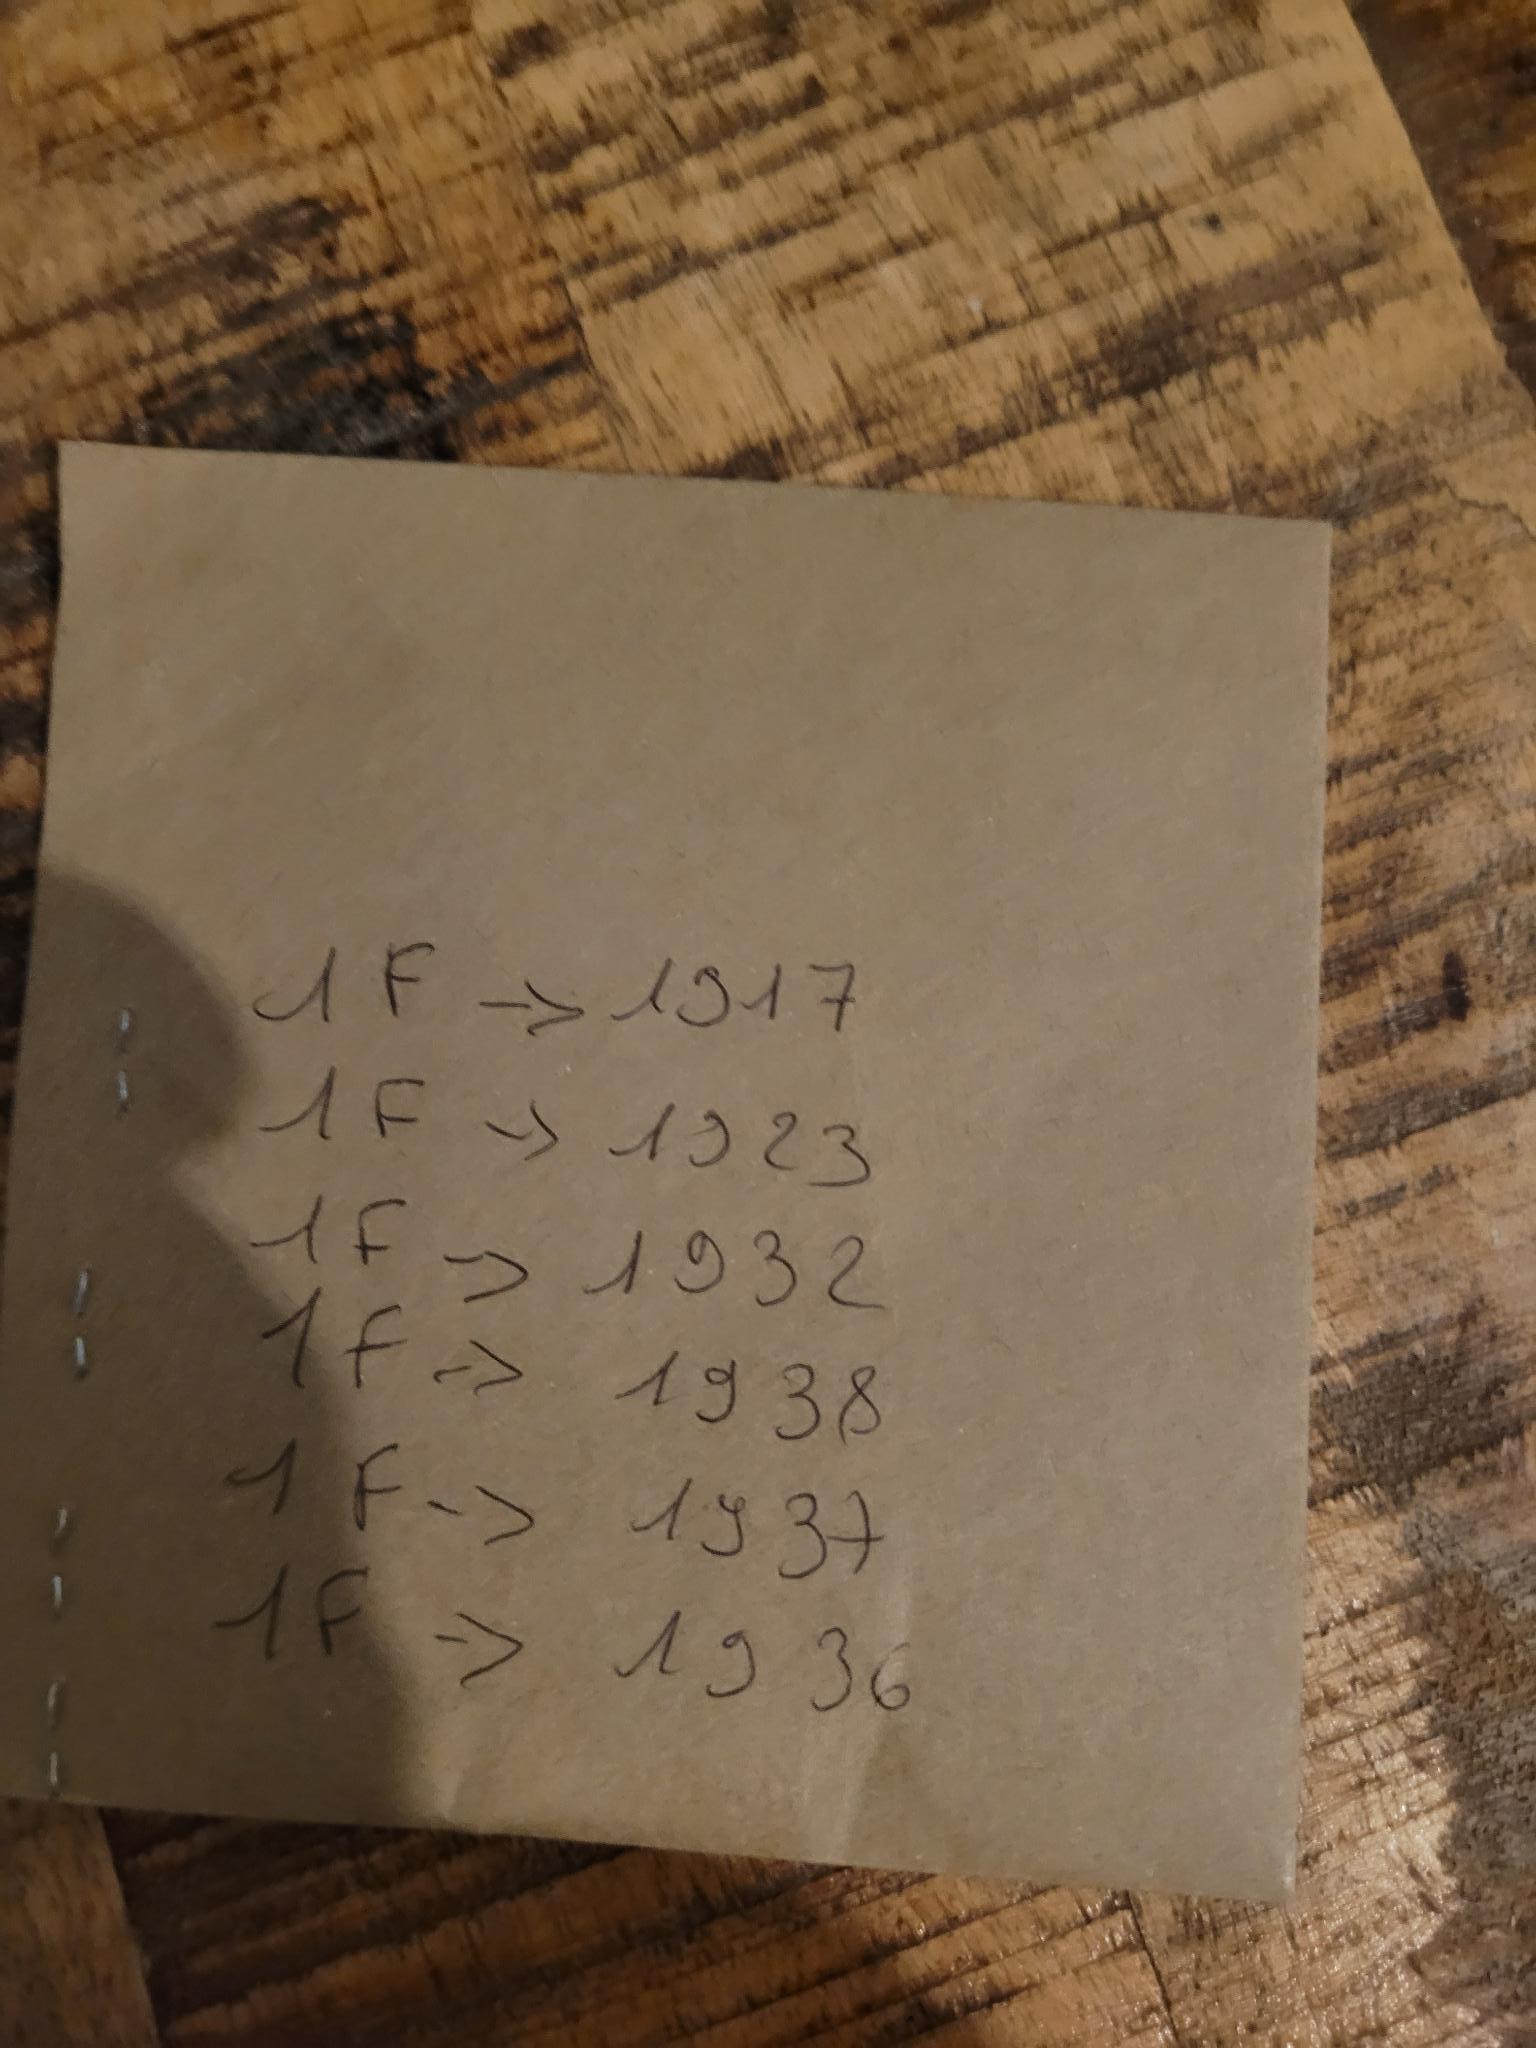 1F -> 1917
1F -> 1923
1F -> 1932
1F -> 1938
1F -> 1937
1F -> 1936